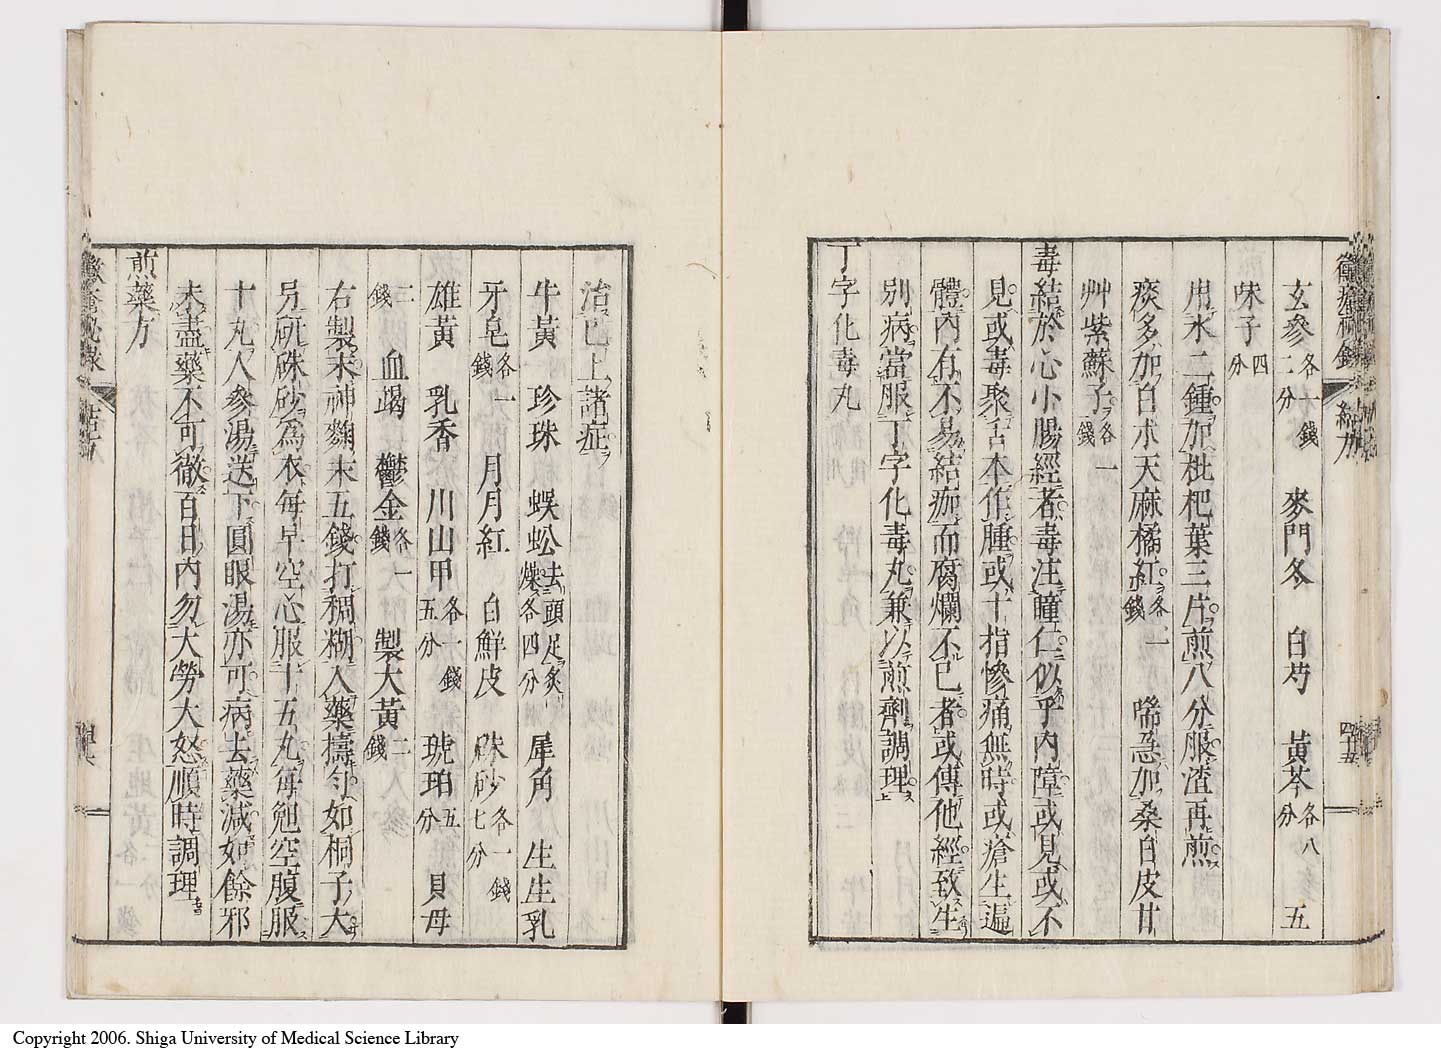 玄參各一錢二分　麥門冬　白芍　黃芩各八分　五
味子四分
用水二鍾加枇杷葉三片煎八分服渣再煎
痰多加白朮天麻橘紅各一錢　喘急加桑白皮甘
艸紫蘇子各一錢
毒結於心小腸經者毒注瞳仁似乎内障或見或不
見或毒聚舌本作腫或十指慘痛無時或瘡生遍
體内有不易結痂而腐爛不已者或傳他經致生
別病當服丁字化毒丸兼以煎劑調理
丁字化毒丸
治已上諸症
牛黃　珍珠　蜈蚣去頭足炙燥各四分　犀角　生生乳
牙皂各一錢　月月紅　白鮮皮　硃砂各一錢七分
雄黃　乳香　川山甲各一錢五分　琥珀五分　貝母
二錢　血竭　鬱金各一錢　製大黃二錢
右製末神麴末五錢打稠糊入藥擣匀如桐子大
另研硃砂為衣每早空心服十五丸每勉空腹服
十丸人參湯送下圓眼湯亦可病去藥減如餘邪
未盡藥不可徹百日内勿大勞大怒順時調理
煎藥方
Copyright 2006. Shiga University of Medical Science Library